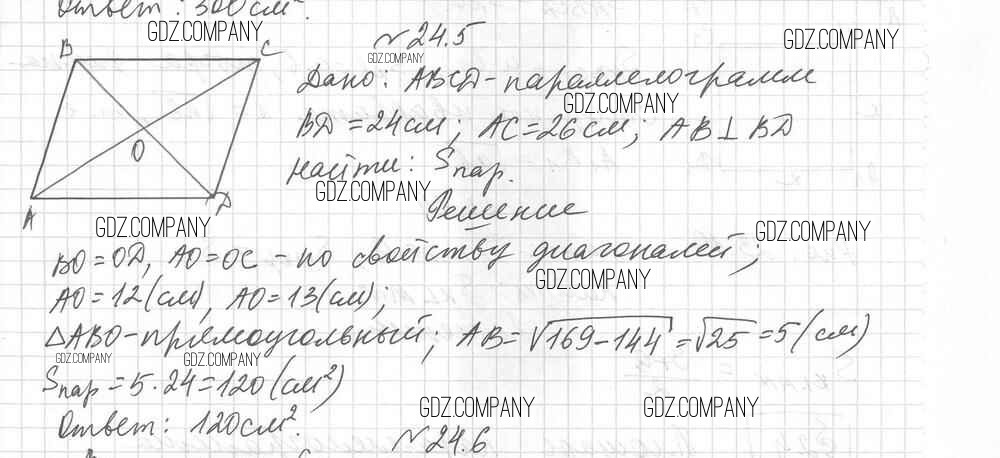 Ответ: 300 см².
GDZ.COMPANY
№ 24.5
GDZ.COMPANY
GDZ.COMPANY
B C
O
A D
Дано: ABCD - параллелограмм
GDZ.COMPANY
BD = 24 см; AC = 26 см; AB ⊥ BD
Найти: Sпар.
GDZ.COMPANY
Решение
GDZ.COMPANY
GDZ.COMPANY
BO = OD, AO = OC - по свойству диагоналей;
GDZ.COMPANY
AO = 12 (см), AO = 13 (см);
△ABO - прямоугольный; AB = √169-144 = √25 = 5 (см)
GDZ.COMPANY
GDZ.COMPANY
Sпар = 5 · 24 = 120 (см²)
GDZ.COMPANY
GDZ.COMPANY
Ответ: 120 см².
№ 24.6